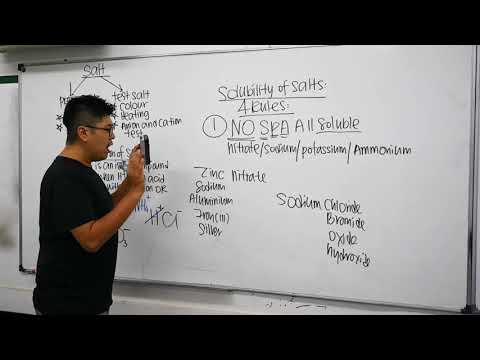 Salt
test salt
* Colour
* Heating
* Anion and Cation
test
H+ Cl-
Solubility of Salts:
4 Rules:
① NO SPA All Soluble
Nitrate/Sodium/Potassium/Ammonium
Zinc Nitrate
Sodium
Aluminium
Iron(III)
Silver
Sodium Chloride
Bromide
Oxide
hydroxide